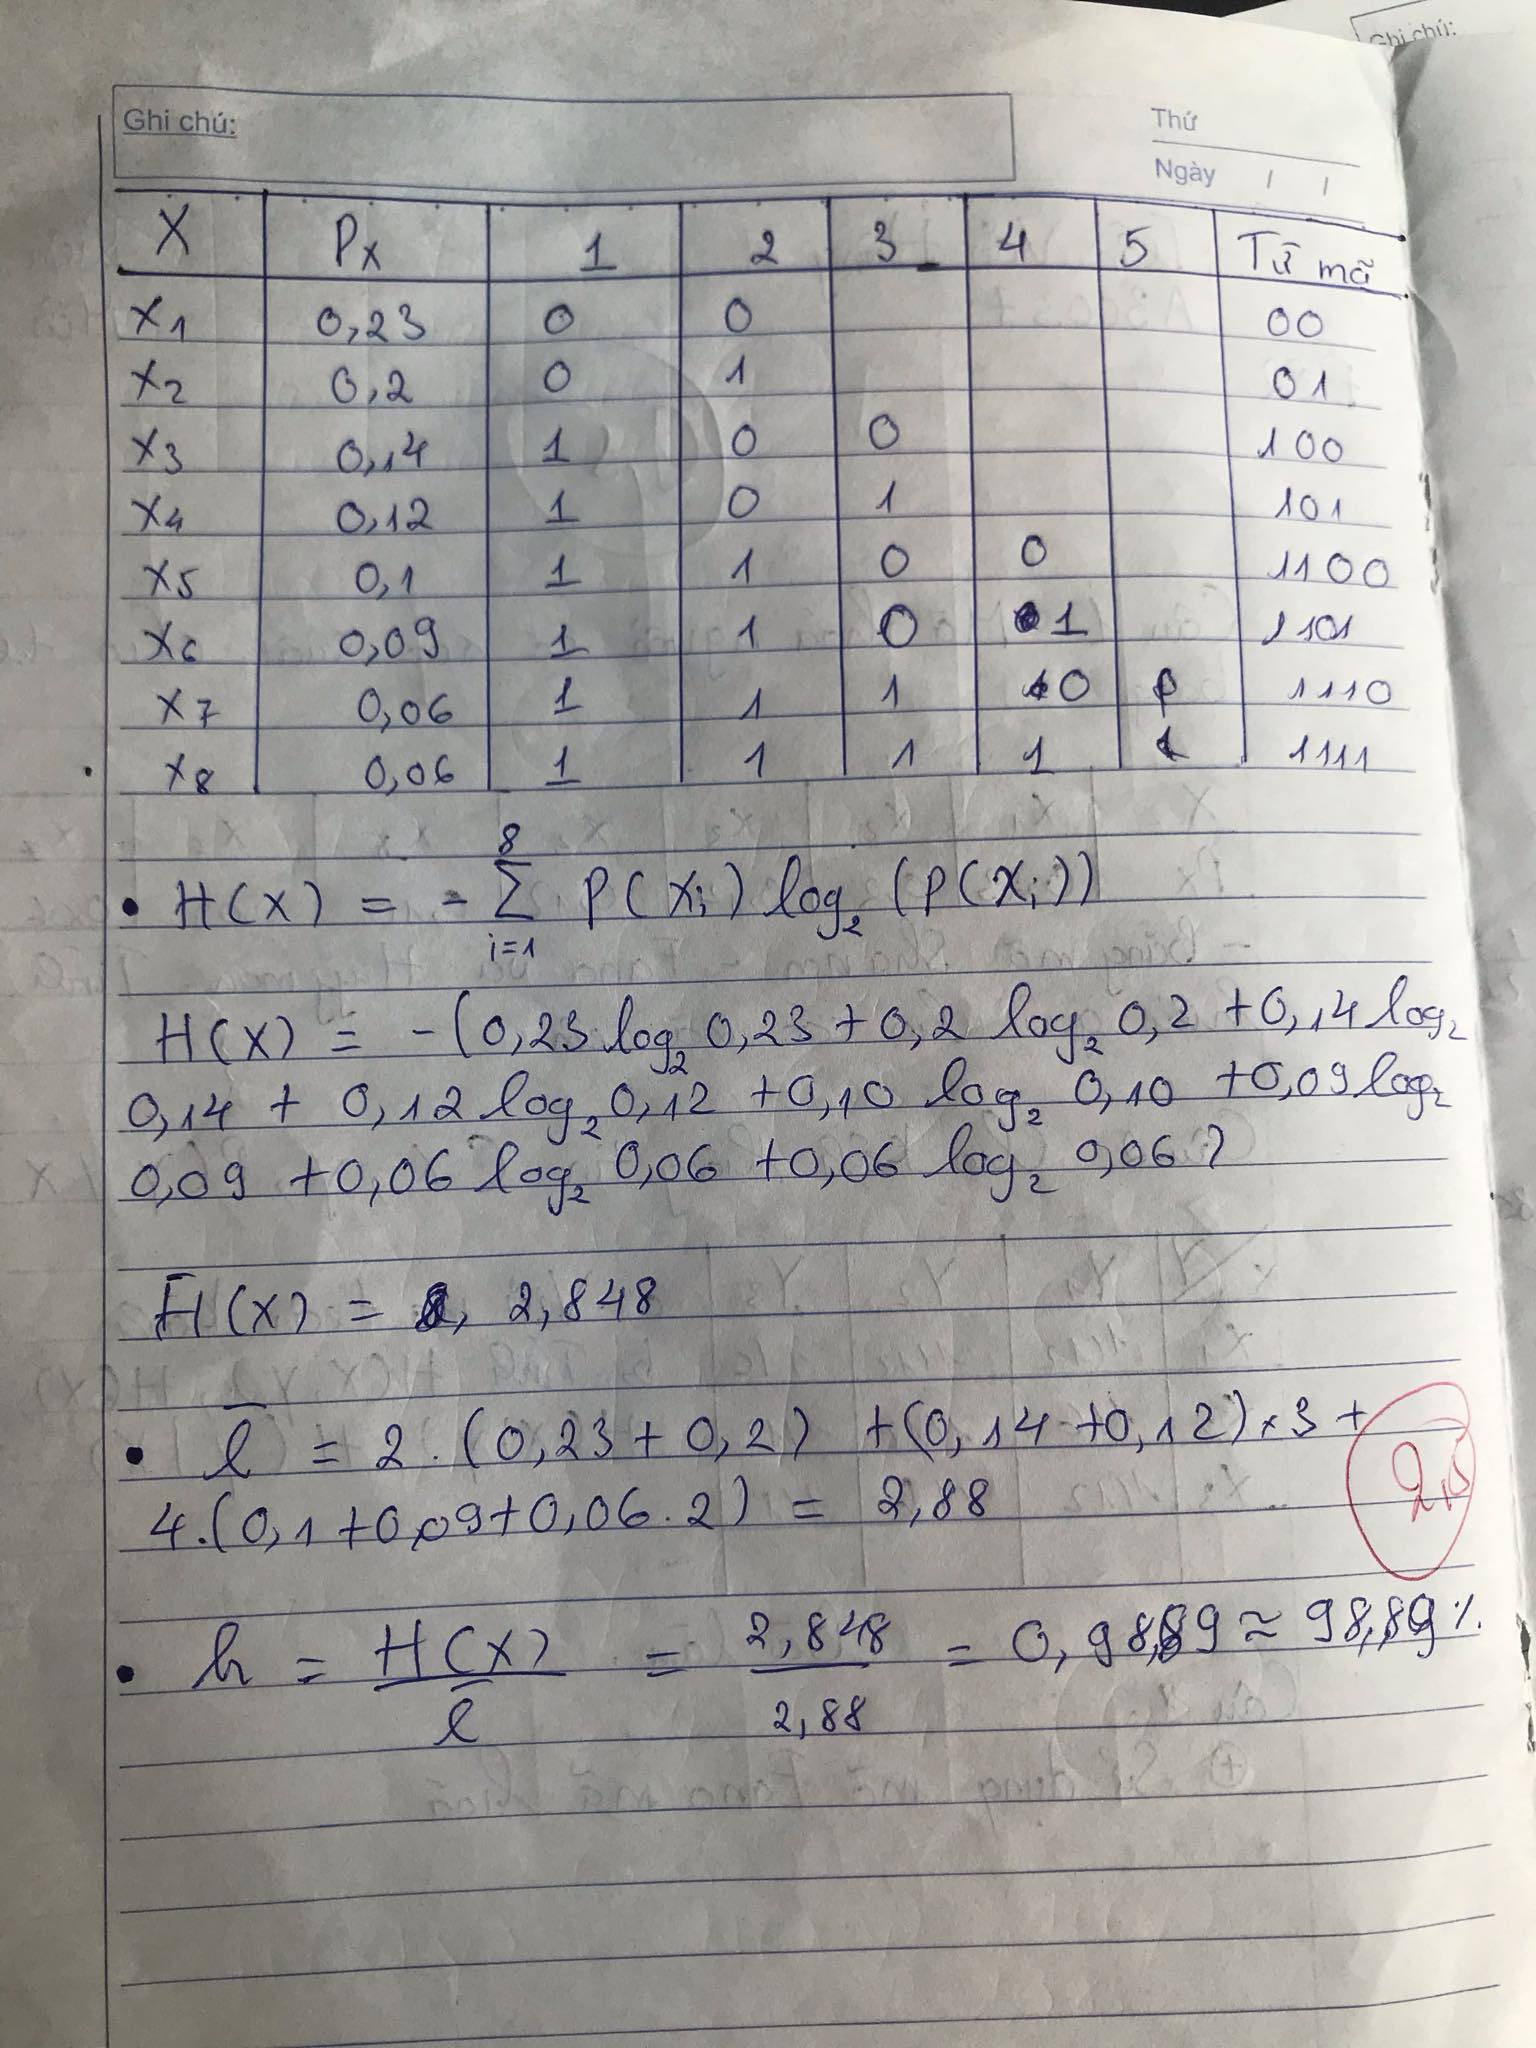 Ghi chú:
Ghi chú:
Thứ
Ngày / /
X Px 1 2 3 4 5 Từ mã
x1 0,23 0 0 00
x2 0,2 0 1 01
x3 0,14 1 0 0 100
x4 0,12 1 0 1 101
x5 0,1 1 1 0 0 1100
x6 0,09 1 1 0 1 1101
x7 0,06 1 1 1 0 1110
x8 0,06 1 1 1 1 1111
• H(X) = - 8∑i=1 P(Xi) log2 (P(Xi))
H(X) = -(0,23 log2 0,23 + 0,2 log2 0,2 + 0,14 log2
0,14 + 0,12 log2 0,12 + 0,10 log2 0,10 + 0,09 log2
0,09 + 0,06 log2 0,06 + 0,06 log2 0,06)
H(X) = 2,848
• l̄ = 2.(0,23 + 0,2) + (0,14 + 0,12)×3 +
4.(0,1+0,09+0,06.2) = 2,88
2,5
• h = H(X) / l̄ = 2,848 / 2,88 = 0,9889 ≈ 98,89%